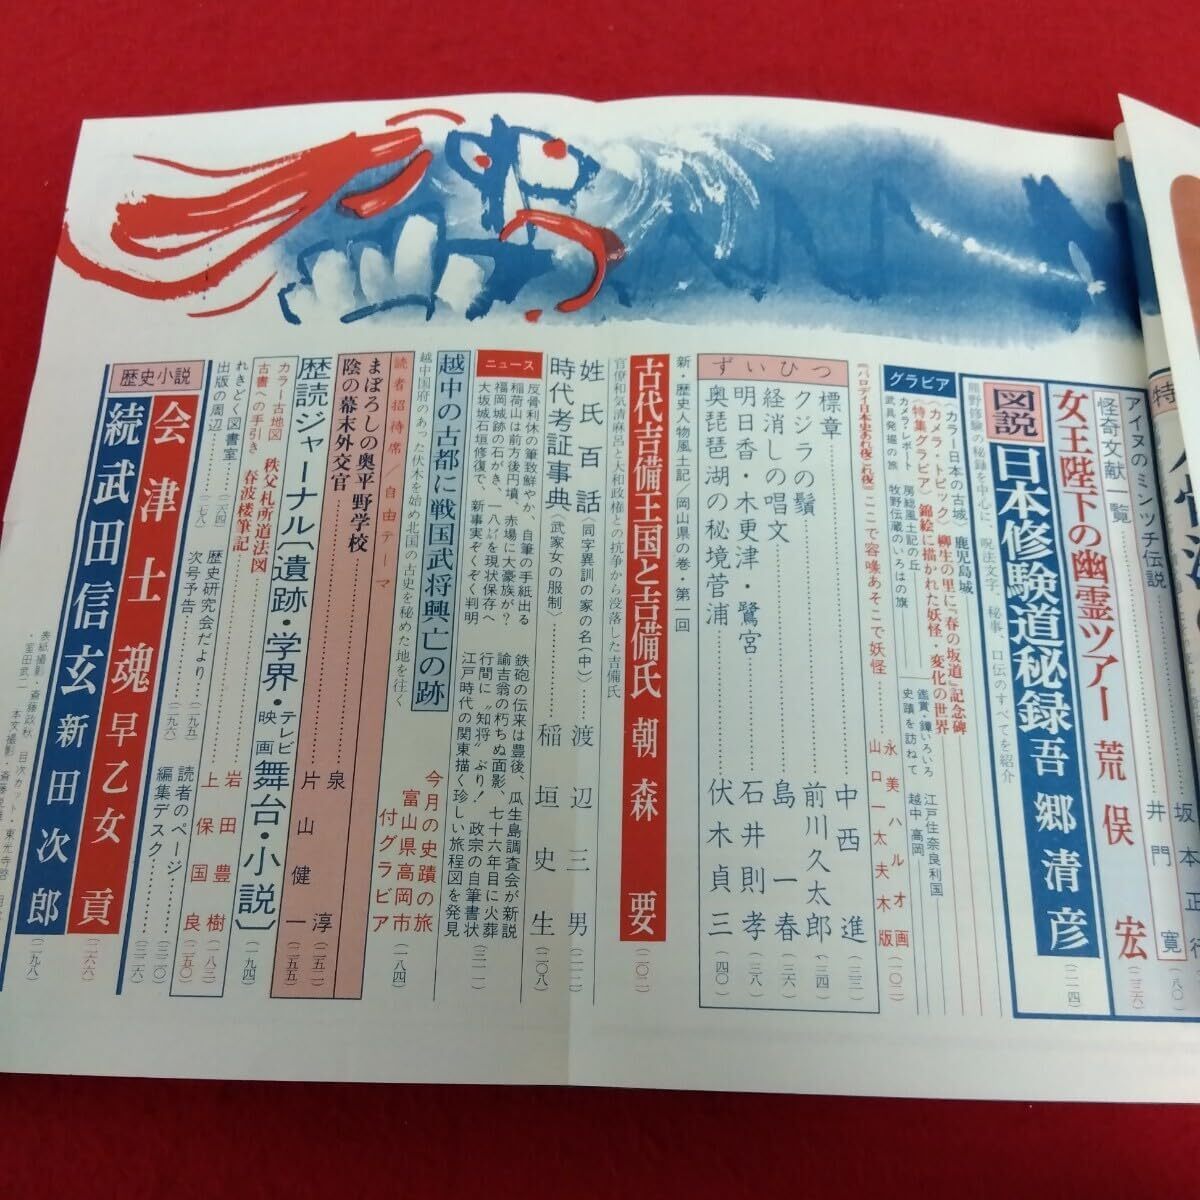 アイヌのミンツチ伝説
井門寛(一八〇)
怪奇文献一覧
女王陛下の幽霊ツアー 荒俣宏(二三六)
図説
日本修験道秘録 吾郷清彦(二一四)
熊野修験の秘録を中心に、呪法文字、秘事、口伝のすべてを紹介
グラビア
カラー・日本の古城 鹿児島城
〈カメラ・トピック〉柳生の里に「春の坂道」記念碑
〈特集グラビア〉錦絵に描かれた妖怪・変化の世界
カメラ・レポート 房総風土記の丘
武具発掘の旅 牧野伝蔵のいろはの旗
鑑賞・鐔いろいろ 江戸住奈良利国
史蹟を訪ねて 越中高岡
ここで容喙あそこで妖怪
永美ハルオ画
山口一太夫木版(一〇二)
ずいひつ
標章 中西進(三三)
クジラの鬚 前川久太郎(三四)
経消しの唱文 島一春(三六)
明日香・木更津・鷺宮 石井則孝(三八)
奥琵琶湖の秘境菅浦 伏木貞三(四〇)
新・歴史人物風土記/岡山県の巻・第一回
古代吉備王国と吉備氏 朝森要(二〇二)
官僚和気清麻呂と大和政権との抗争から没落した吉備氏
姓氏百話〈同字異訓の家の名(中)〉 渡辺三男(二一二)
時代考証事典〈武家女の服制〉 稲垣史生(二〇八)
ニュース
反骨利休の筆致鮮やか、自筆の手紙出る
稲荷山は前方後円墳、赤場に大豪族が?
福岡城跡の石がき、一八㌢を現状保存へ
大坂城石垣修復で、新事実ぞくぞく判明
鉄砲の伝来は豊後、瓜生島調査会が新説
諭吉翁の朽ちぬ面影、七十六年目に火葬
行間に〝知将〟ぶり! 政宗の自筆書状
江戸時代の関東描く珍しい旅程図を発見
越中の古都に戦国武将興亡の跡
越中国府のあった伏木を始め北国の古史を秘めた地を往く
今月の史蹟の旅
富山県高岡市
付グラビア(一八四)
読者招待席/自由テーマ
まぼろしの奥平野学校 泉淳(二五二)
陰の幕末外交官 片山健一(二五五)
歴読ジャーナル〔遺跡・学界・テレビ映画・舞台・小説〕(一九四)
カラー古地図 秩父札所道法図
古書への手引き 春波楼筆記
岩田豊樹(一八三)
上保国良(二五〇)
れきどく図書室(二六四)
出版の周辺(七八)
歴史研究会だより(二九五)
次号予告(二九六)
読者のページ(三二〇)
編集デスク(三二六)
歴史小説
会津士魂 早乙女貢(二六六)
続武田信玄 新田次郎(二九八)